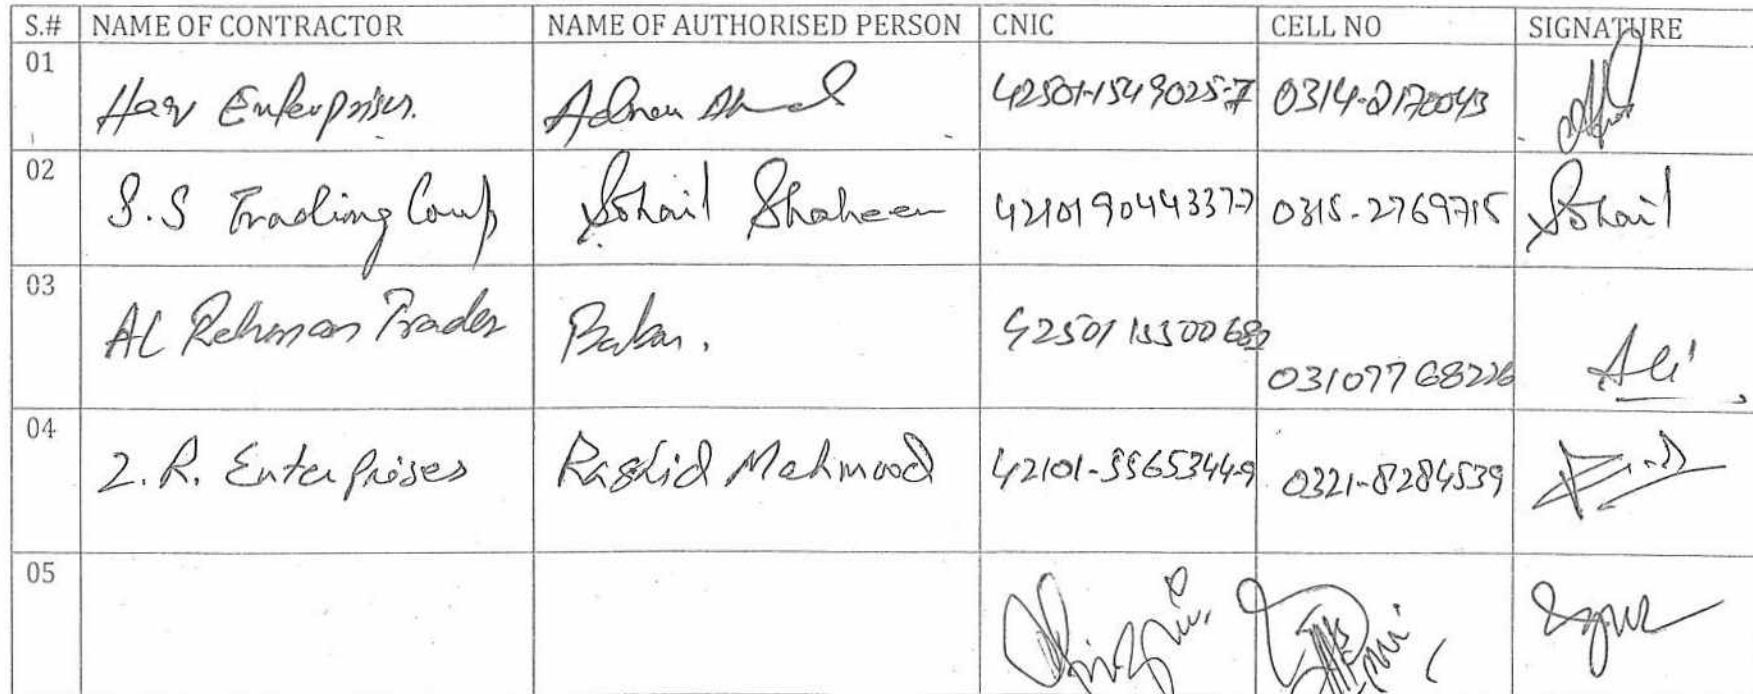 S.# NAME OF CONTRACTOR NAME OF AUTHORISED PERSON CNIC CELL NO SIGNATURE
01 Enterprises. Adnan 42501-1549025-7 0314-2170043
02 S.S Trading Comp Sohail Shaheen 42101 9044337-7 0315-2769715 Sohail
03 AL Rehman Trader Babar. 03107768226 Ali
04 Z.R. Enterprises Rashid Mehmood 42101-5565344-9 0321-8284539
05